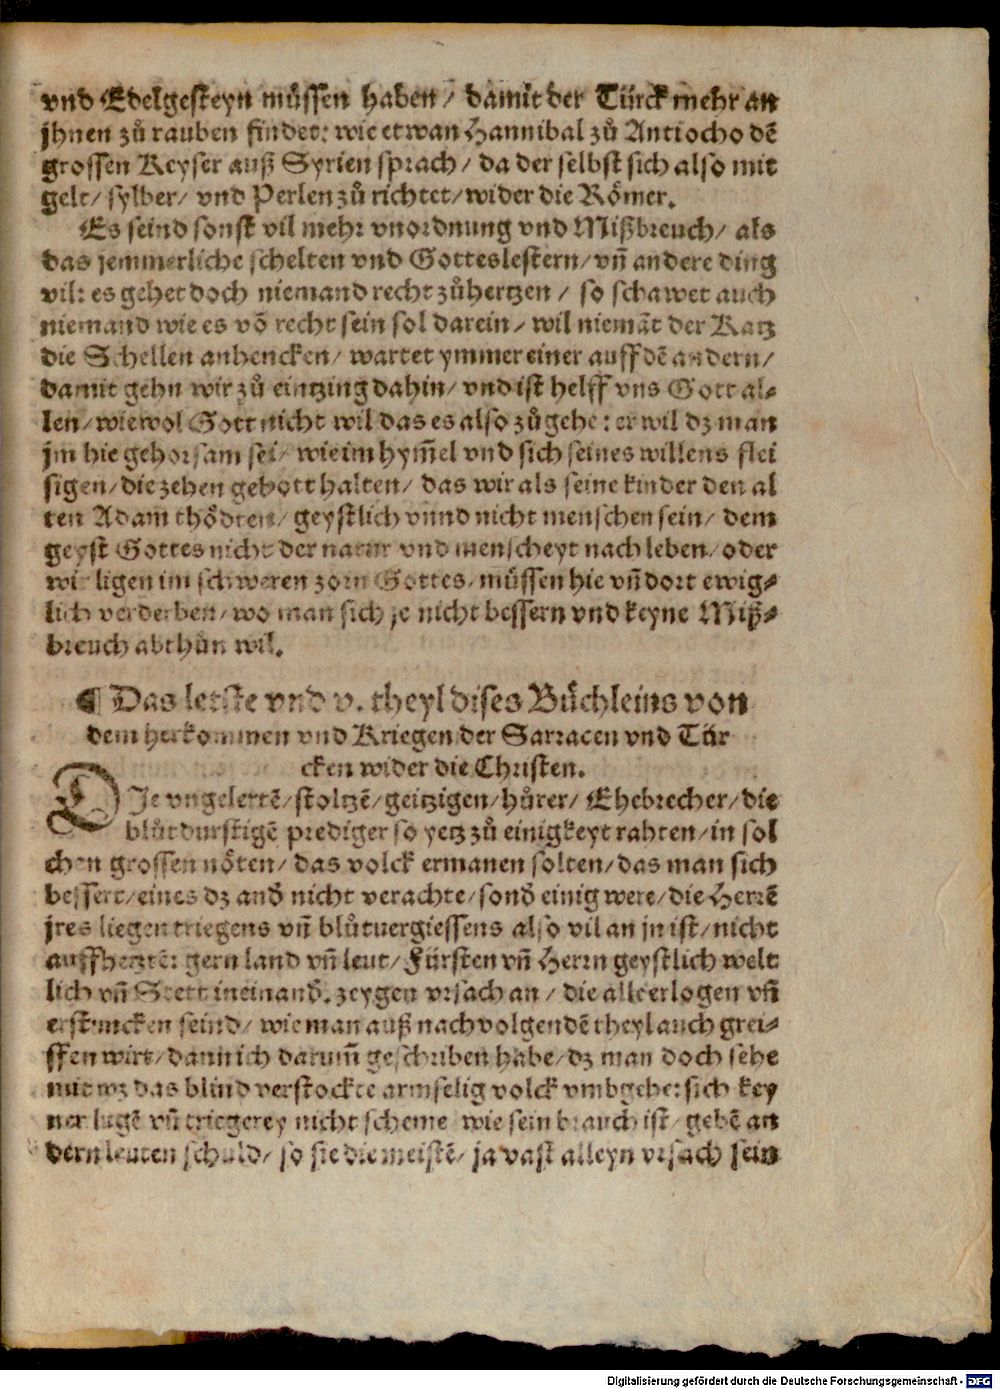 vnd Edelgesteyn müssen haben / damit der Türck mehr an
jhnen zů rauben findet: wie etwan Hannibal zů Antiocho dē
grossen Keyser auß Syrien sprach / da der selbst sich also mit
gelt / sylber / vnd Perlen zů richtet / wider die Römer.
Es seind sonst vil mehr vnordnung vnd Mißbreuch / als
das jemmerliche schelten vnd Gotteslestern / vñ andere ding
vil: es gehet doch niemand recht zůhertzen / so schawet auch
niemand wie es vō recht sein sol darein / wil niemāt der Katz
die Schellen anhencken / wartet ymmer einer auff dē andern /
damit gehn wir zů eintzing dahin / vnd ist helff vns Gott al-
len / wiewol Gott nicht wil das es also zůgehe: er wil dz man
jm hie gehorsam sei / wie im hym̄el vnd sich seines willens flei
sigen / die zehen gebott halten / das wir als seine kinder den al
ten Adam thödten / geystlich vnnd nicht menschen sein / dem
geyst Gottes nicht der natur vnd menscheyt nach leben / oder
wir ligen im schweren zorn Gottes / müssen hie vñ dort ewig-
lich verderben / wo man sich je nicht bessern vnd keyne Miß-
breuch abthůn wil.
¶ Das letste vnd v. theyl dises Büchleins von
dem herkommen vnd Kriegen der Sarracen vnd Tür
cken wider die Christen.
DJe vngelertē / stoltzē / geitzigen / hůrer / Ehebrecher / die
blůtdurstigē prediger so yetz zů einigkeyt rahten / in sol
chen grossen nöten / das volck ermanen solten / das man sich
bessert / eines dz and̄ nicht verachte / sond̄ einig were / die Herrē
jres liegen triegens vñ blůtuergiessens also vil an jn ist / nicht
auffhetztē: gern land vñ leut / Fürsten vñ Herrn geystlich welt
lich vñ Stett ineinand̄. zeygen vrsach an / die all erlogen vñ
erstuncken seind / wie man auß nachvolgendē theyl auch grei-
ffen wirt / dann ich darum̄ geschriben habe / dz man doch sehe
mit wz das blind verstockte armselig volck vmbgehe: sich key
ner lugē vñ triegerey nicht scheme / wie sein brauch ist / gebē an
dern leuten schuld / so sie die meistē / ja vast alleyn vrsach sein
Digitalisierung gefördert durch die Deutsche Forschungsgemeinschaft - DFG